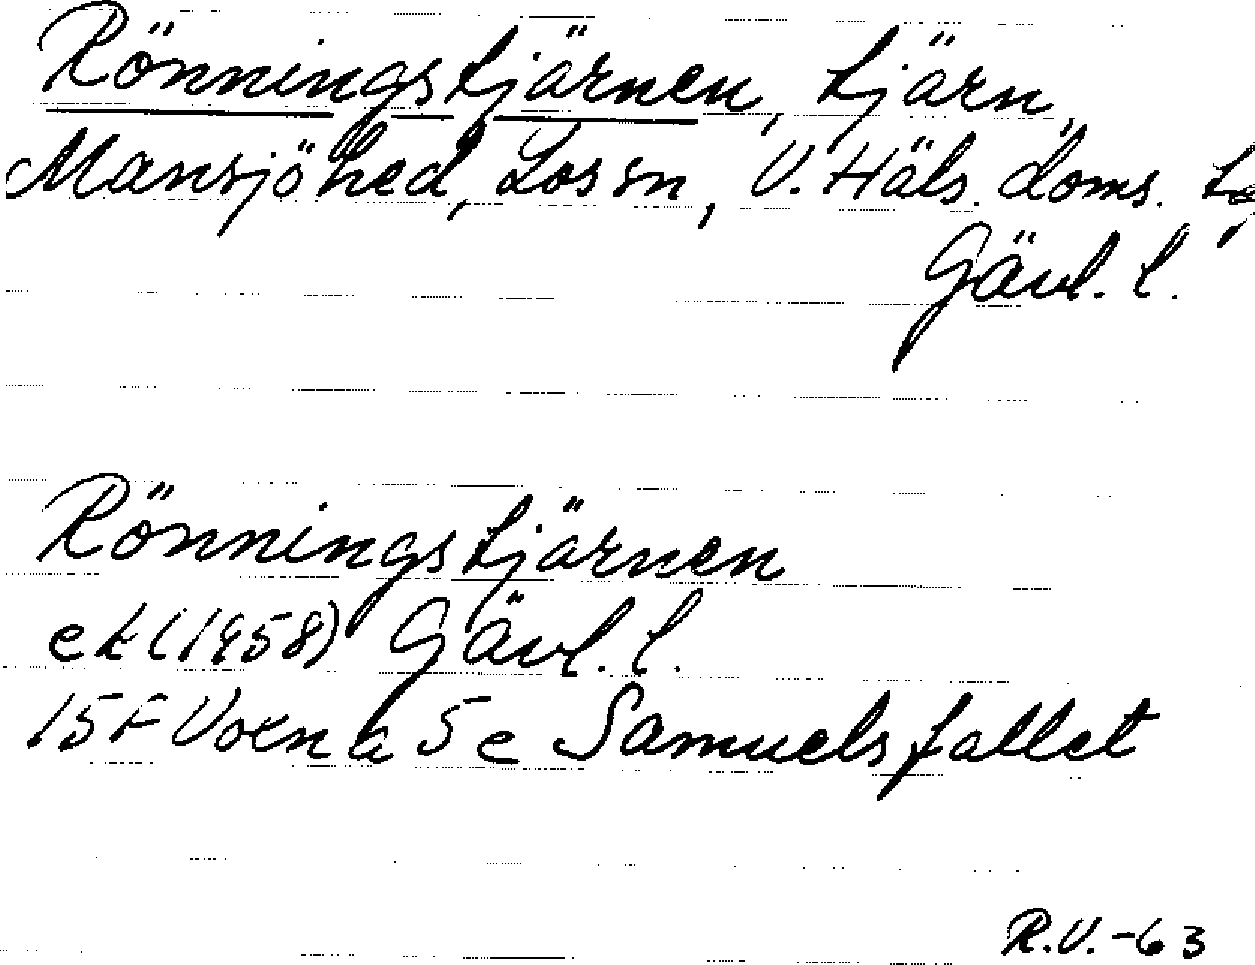 Rönningstjärnen, tjärn,
Mansjöhed, Los sn, V. Häls. doms.
Gävl. l.
Rönningstjärnen
ek (1958) Gävl. l.
15F Voxna 5e Samuelsfallet
R.V.-63